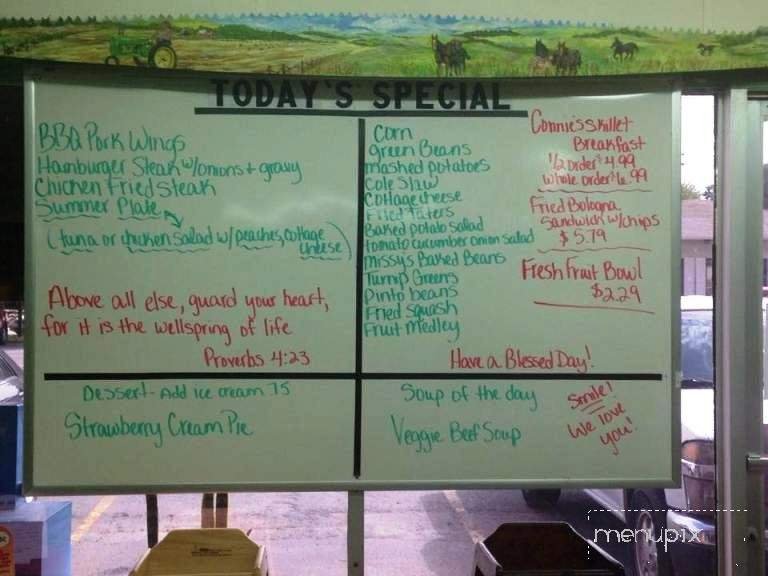 TODAY'S SPECIAL
BBQ Pork Wings
Hamburger Steak w/onions + gravy
Chicken Fried Steak
Summer Plate
(tuna or chicken salad w/peaches, cottage
cheese)
Above all else, guard your heart,
for it is the wellspring of life
Proverbs 4:23
Corn
green Beans
mashed potatoes
Cole Slaw
Cottage cheese
Fried Taters
Baked potato salad
tomato cucumber onion salad
Missy's Baked Beans
Turnip Greens
Pinto beans
Fried squash
Fruit medley
Connie's skillet
Breakfast
1/2 order $4.99
whole order $6.99
Fried Bologna
Sandwich w/chips
$5.79
Fresh Fruit Bowl
$2.29
Have a Blessed Day!
Dessert - Add ice cream 75
Strawberry Cream Pie
Soup of the day
Veggie Beef Soup
Smile!
We love
you!
menupix